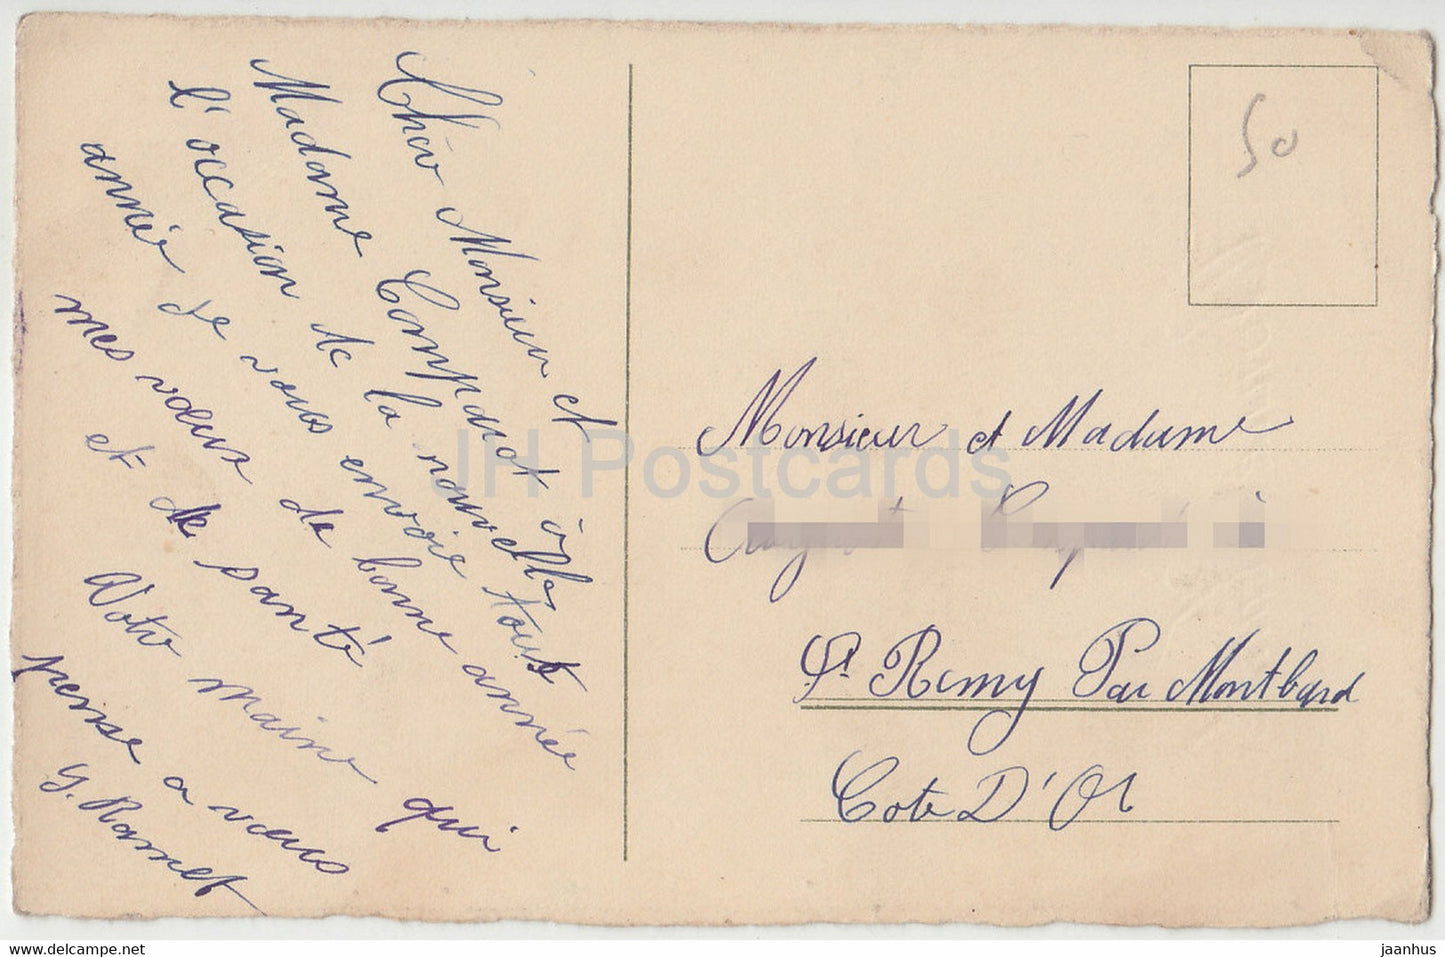 Cher Monsieur et
Madame Compagnot à
l'occasion de la nouvelle
année de vous envoie tout
mes voeux de bonne année
et de santé
Votre maine qui
pense a vous
G. Ramet
50
Monsieur et Madame
St Remy Par Montbard
Cote D'Or
JH Postcards
www.delcampe.net
jaanhus